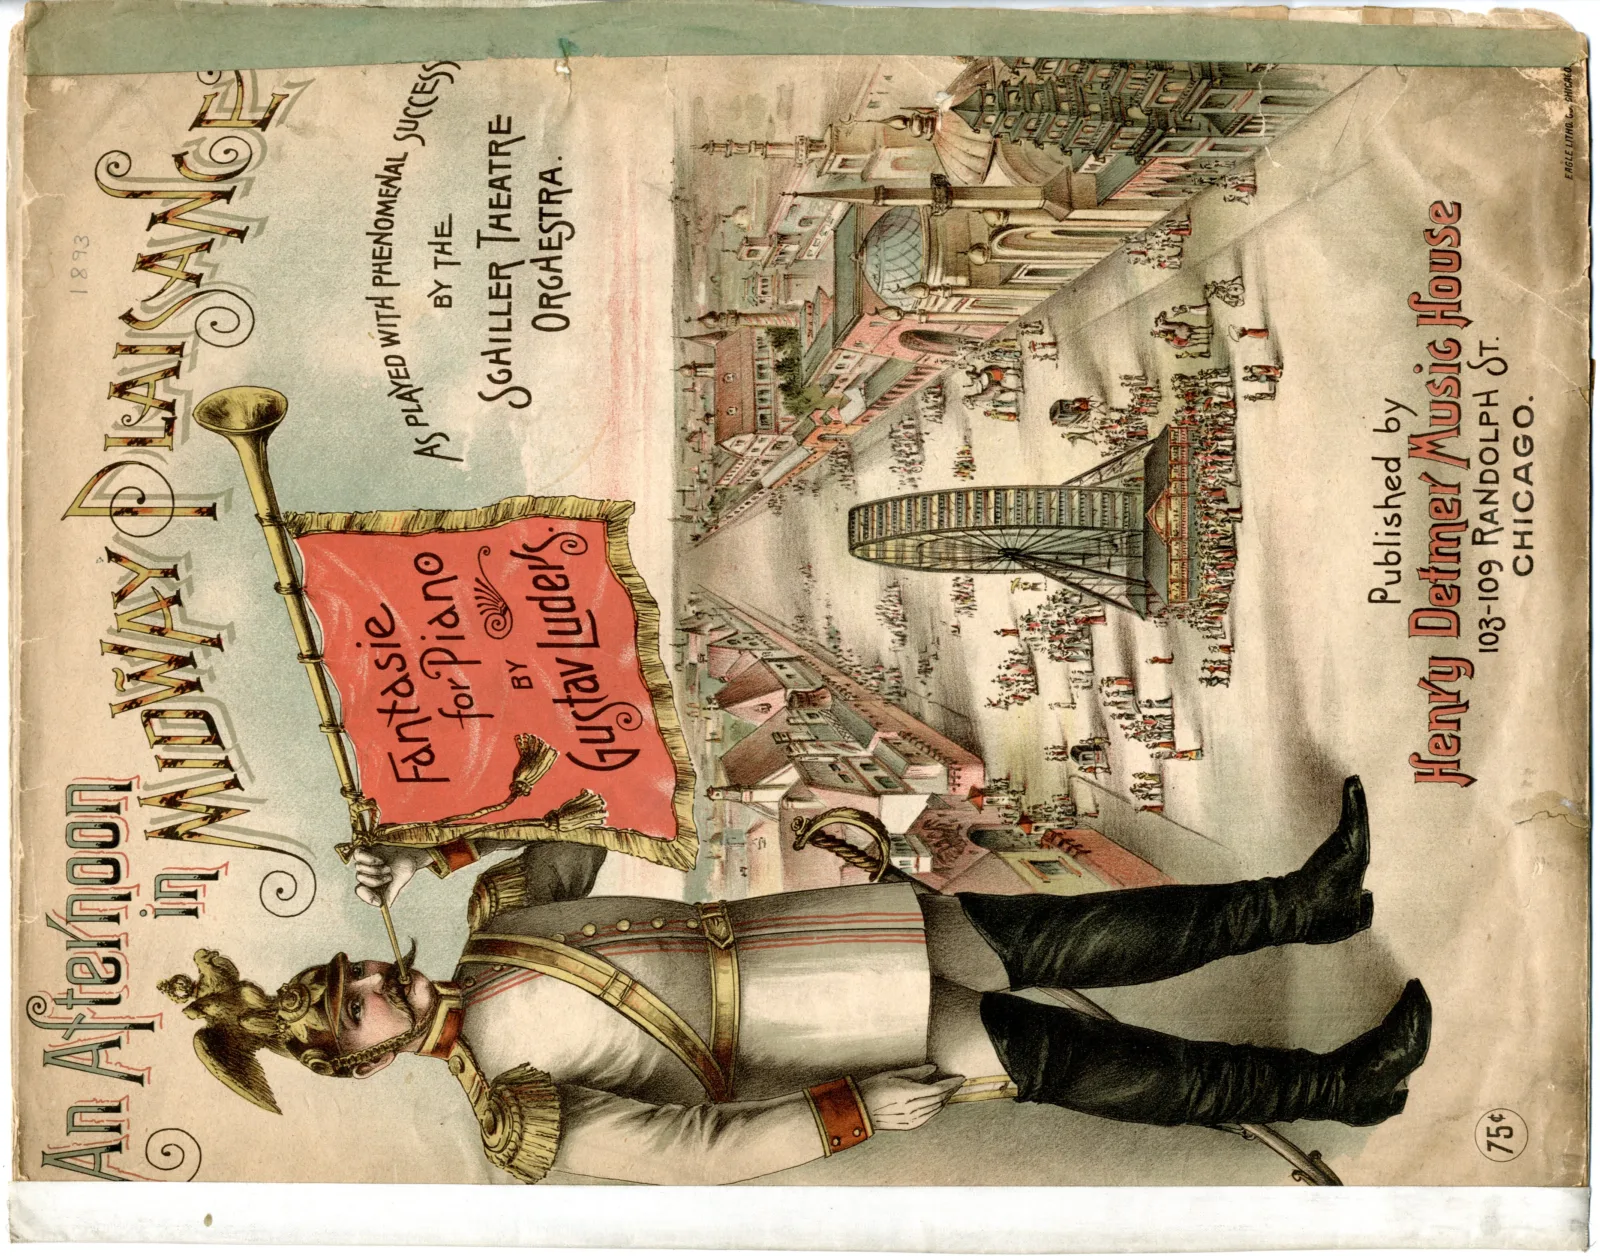 An Afternoon
in
MIDWAY PLAISANCE
1893
AS PLAYED WITH PHENOMENAL SUCCESS
BY THE
SCHILLER THEATRE
ORCHESTRA.
Fantasie
for Piano
BY
Gustav Luders.
Published by
Henry Detmer Music House
103-109 RANDOLPH ST.
CHICAGO.
75¢
EAGLE LITHO. Co. CHICAGO